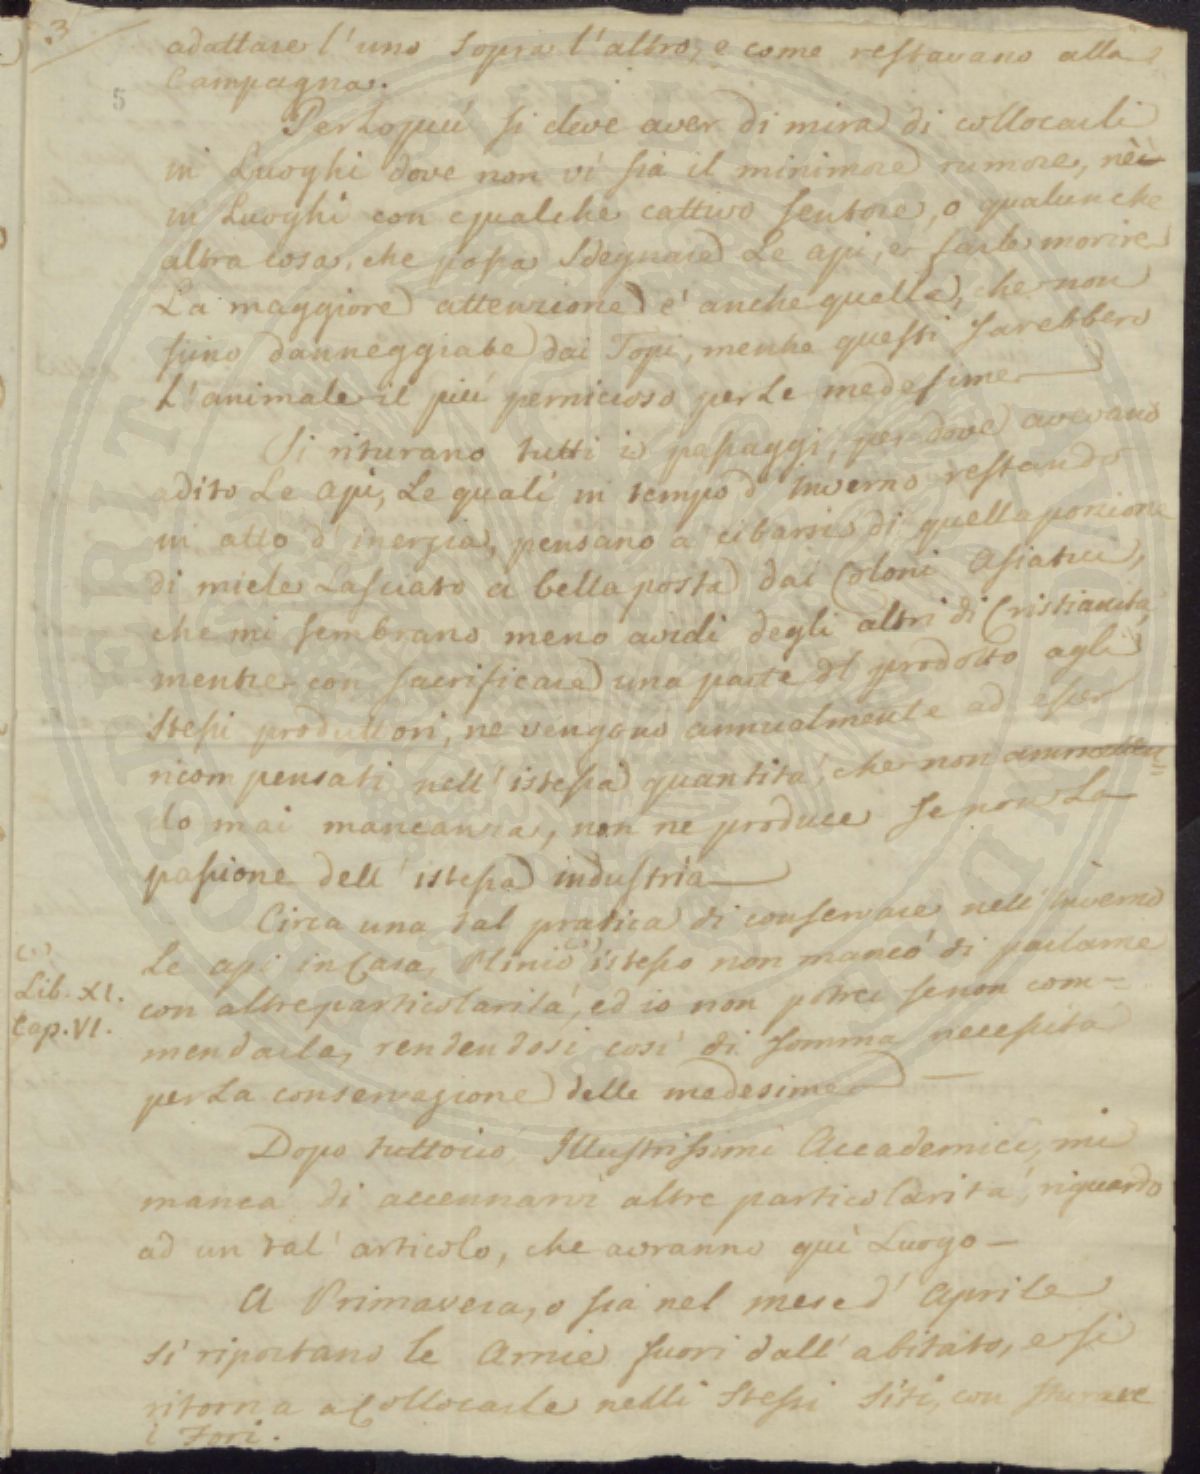 3
5
adattare l'uno sopra l'altro, e come restavano alla
Campagna.
Perlopiú si deve aver di mira di collocarli
in Luoghi dove non vi sia il minimore rumore, nè
in Luoghi con qualche cattivo sentore, o qualunche
altra cosa, che possa sdegnare Le api, e farle morire
La maggiore attenzione é anche quella, che non
siino danneggiate dai Topi, mentre questi sarebbero
L'animale il piú pernicioso per Le medesime
Si riturano tutti i passaggi, per dove avevano
adito Le api, Le quali in tempo d'Inverno restando
in atto d'inerzia, pensano a cibarsi di quella porzione
di miele Lasciato a bella posta dai Coloni Asiatici,
che mi sembrano meno avidi degli altri di Cristianità,
mentre con sacrificare una parte del prodotto agli
stessi produttori, ne vengono annualmente ad esser
ricompensati nell'istessa quantitá, che non ammetten=
do mai mancanza, non ne produce se non La
passione dell'istessa industria
Circa una tal pratica di conservare nell'Inverno
Le api in Casa, Plinio (1) istesso non mancó di parlarne
con altre particolaritá, ed io non potrei se non com=
mendarla, rendendosi cosí di somma necessità
per La conservazione delle medesime
(1)
Lib. XI.
Cap. VI.
Dopo tuttoció Illustrissimi Accademici, mi
manca di accennarvi altre particolaritá, riguardo
ad un tal' articolo, che avranno quì Luogo
A Primavera, o sia nel mese d'Aprile
si riportano le Arnie fuori dall'abitato, e si
ritorna a Collocarle nelli stessi siti, con sturare
i Fori.